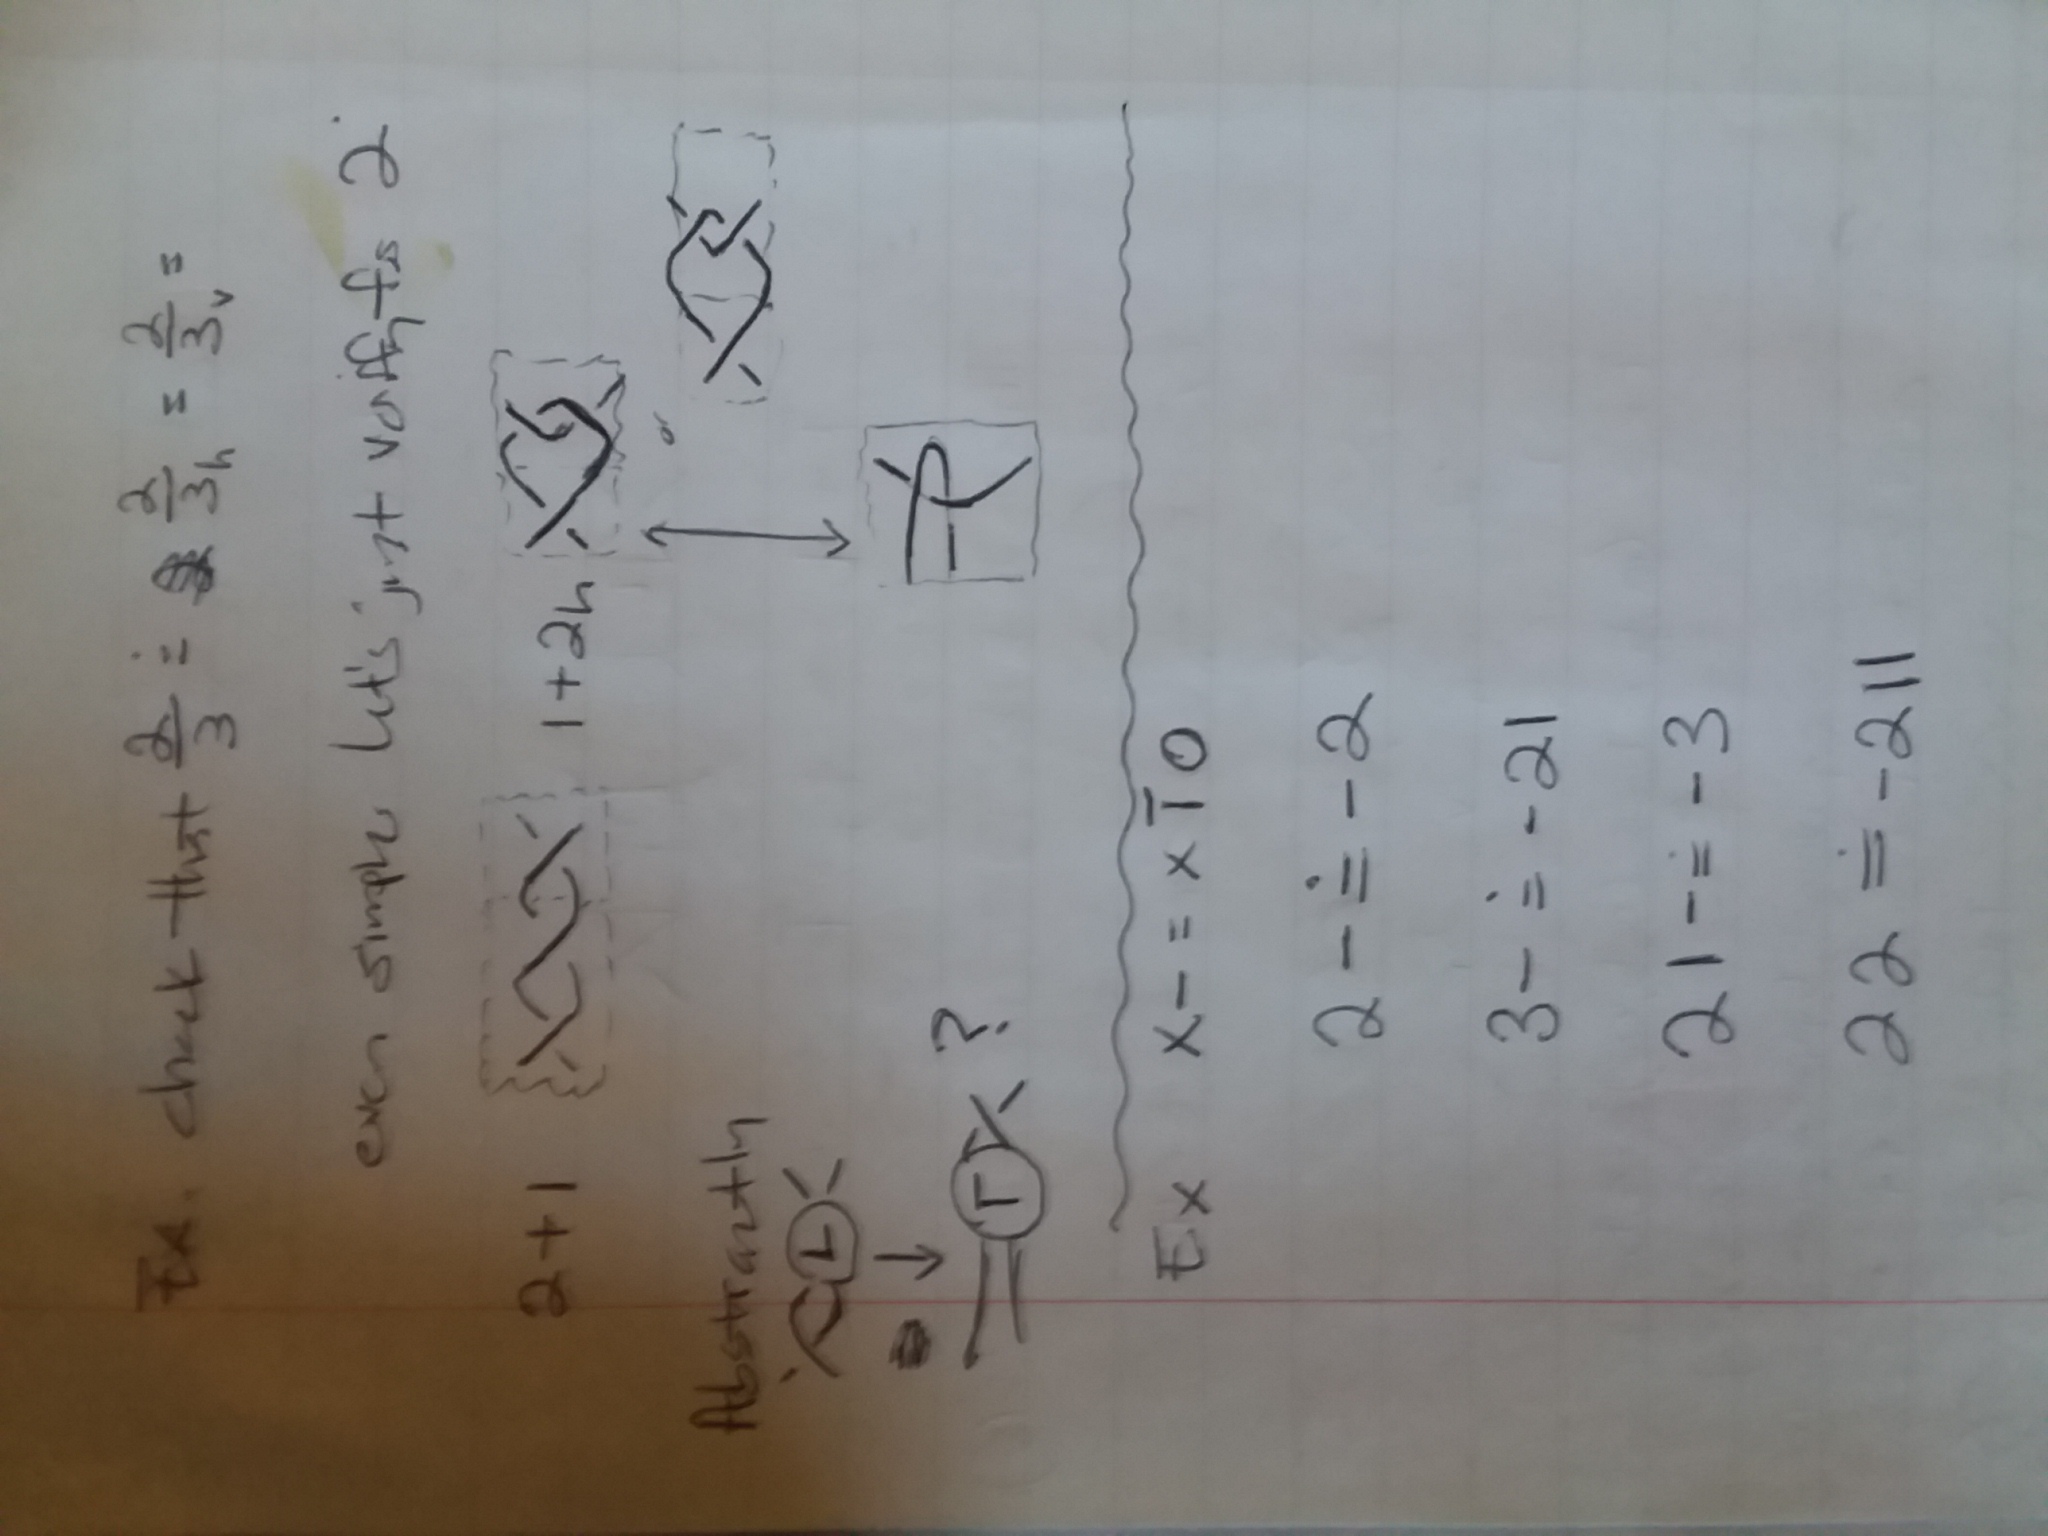 Ex. check that 2/3 ≐ 2/3h = 2/3v =
even simpler let's just verify fs 2
2+1 1+2h
or
Abstractly
L
T ?
Ex x- = x1̄0
2- ≐ -2
3- ≐ -21
21- ≐ -3
22 ≐ -211